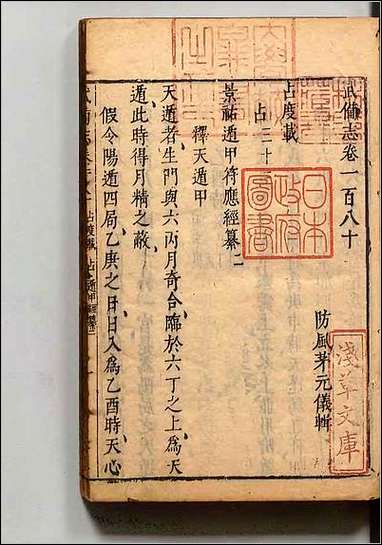 武備志卷一百八十
防風茅元儀輯
占度載
占三十
景祐遁甲符應經纂二
釋天遁甲
天遁者生門與六丙月奇合臨於六丁之上爲天
遁此時得月精之蔽
假令陽遁四局乙庚之日日入爲乙酉時天心
日本
政府
圖書
淺草文庫
占度載